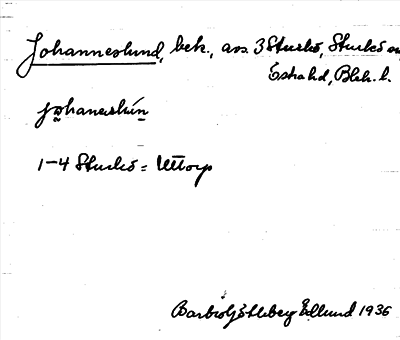 Johanneslund, bek., av. 3 Sturkö, Sturkö sn
Östra hd, Blek. l.
johanəslún
1-4 Sturkö = Uttorp
Barbro Göhlberg Edlund 1936